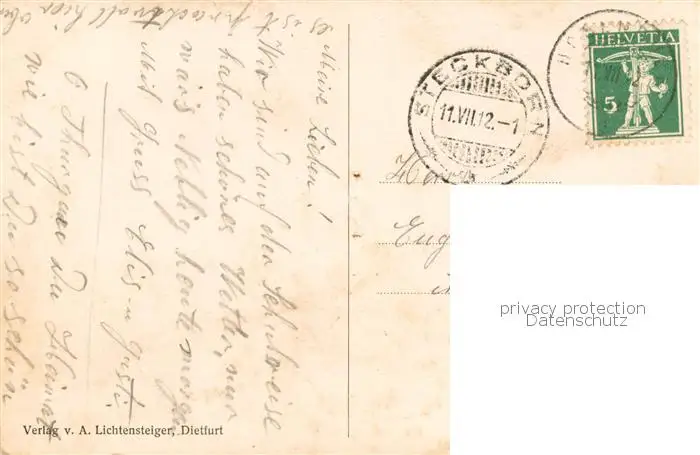 Meine Lieben!
Wir sind auf der Schulreise
haben schönes Wetter, nur
war's Neblig heute morgen
Mit Gruss Elis u Gusti
O Thurgau Du Heimat
wie bist Du so schön
es ist
STECKBORN
11.VII.12.–1
HELVETIA
5
Herrn
Eug
privacy protection
Datenschutz
Verlag v. A. Lichtensteiger, Dietfurt